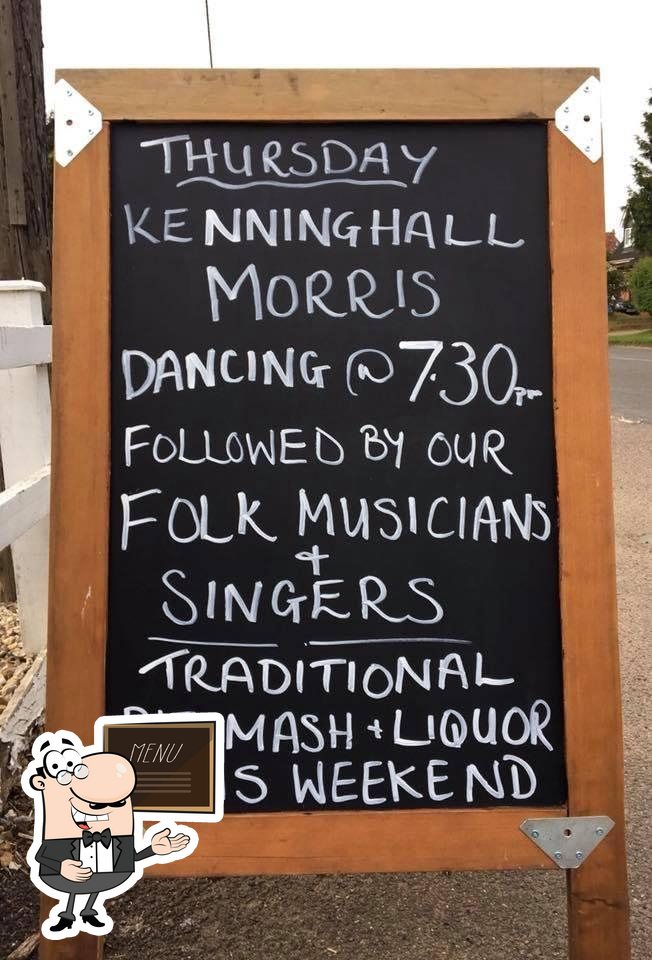 THURSDAY
KENNINGHALL
MORRIS
DANCING @ 7.30pm
FOLLOWED BY OUR
FOLK MUSICIANS
+
SINGERS
TRADITIONAL
MASH + LIQUOR
S WEEKEND
MENU